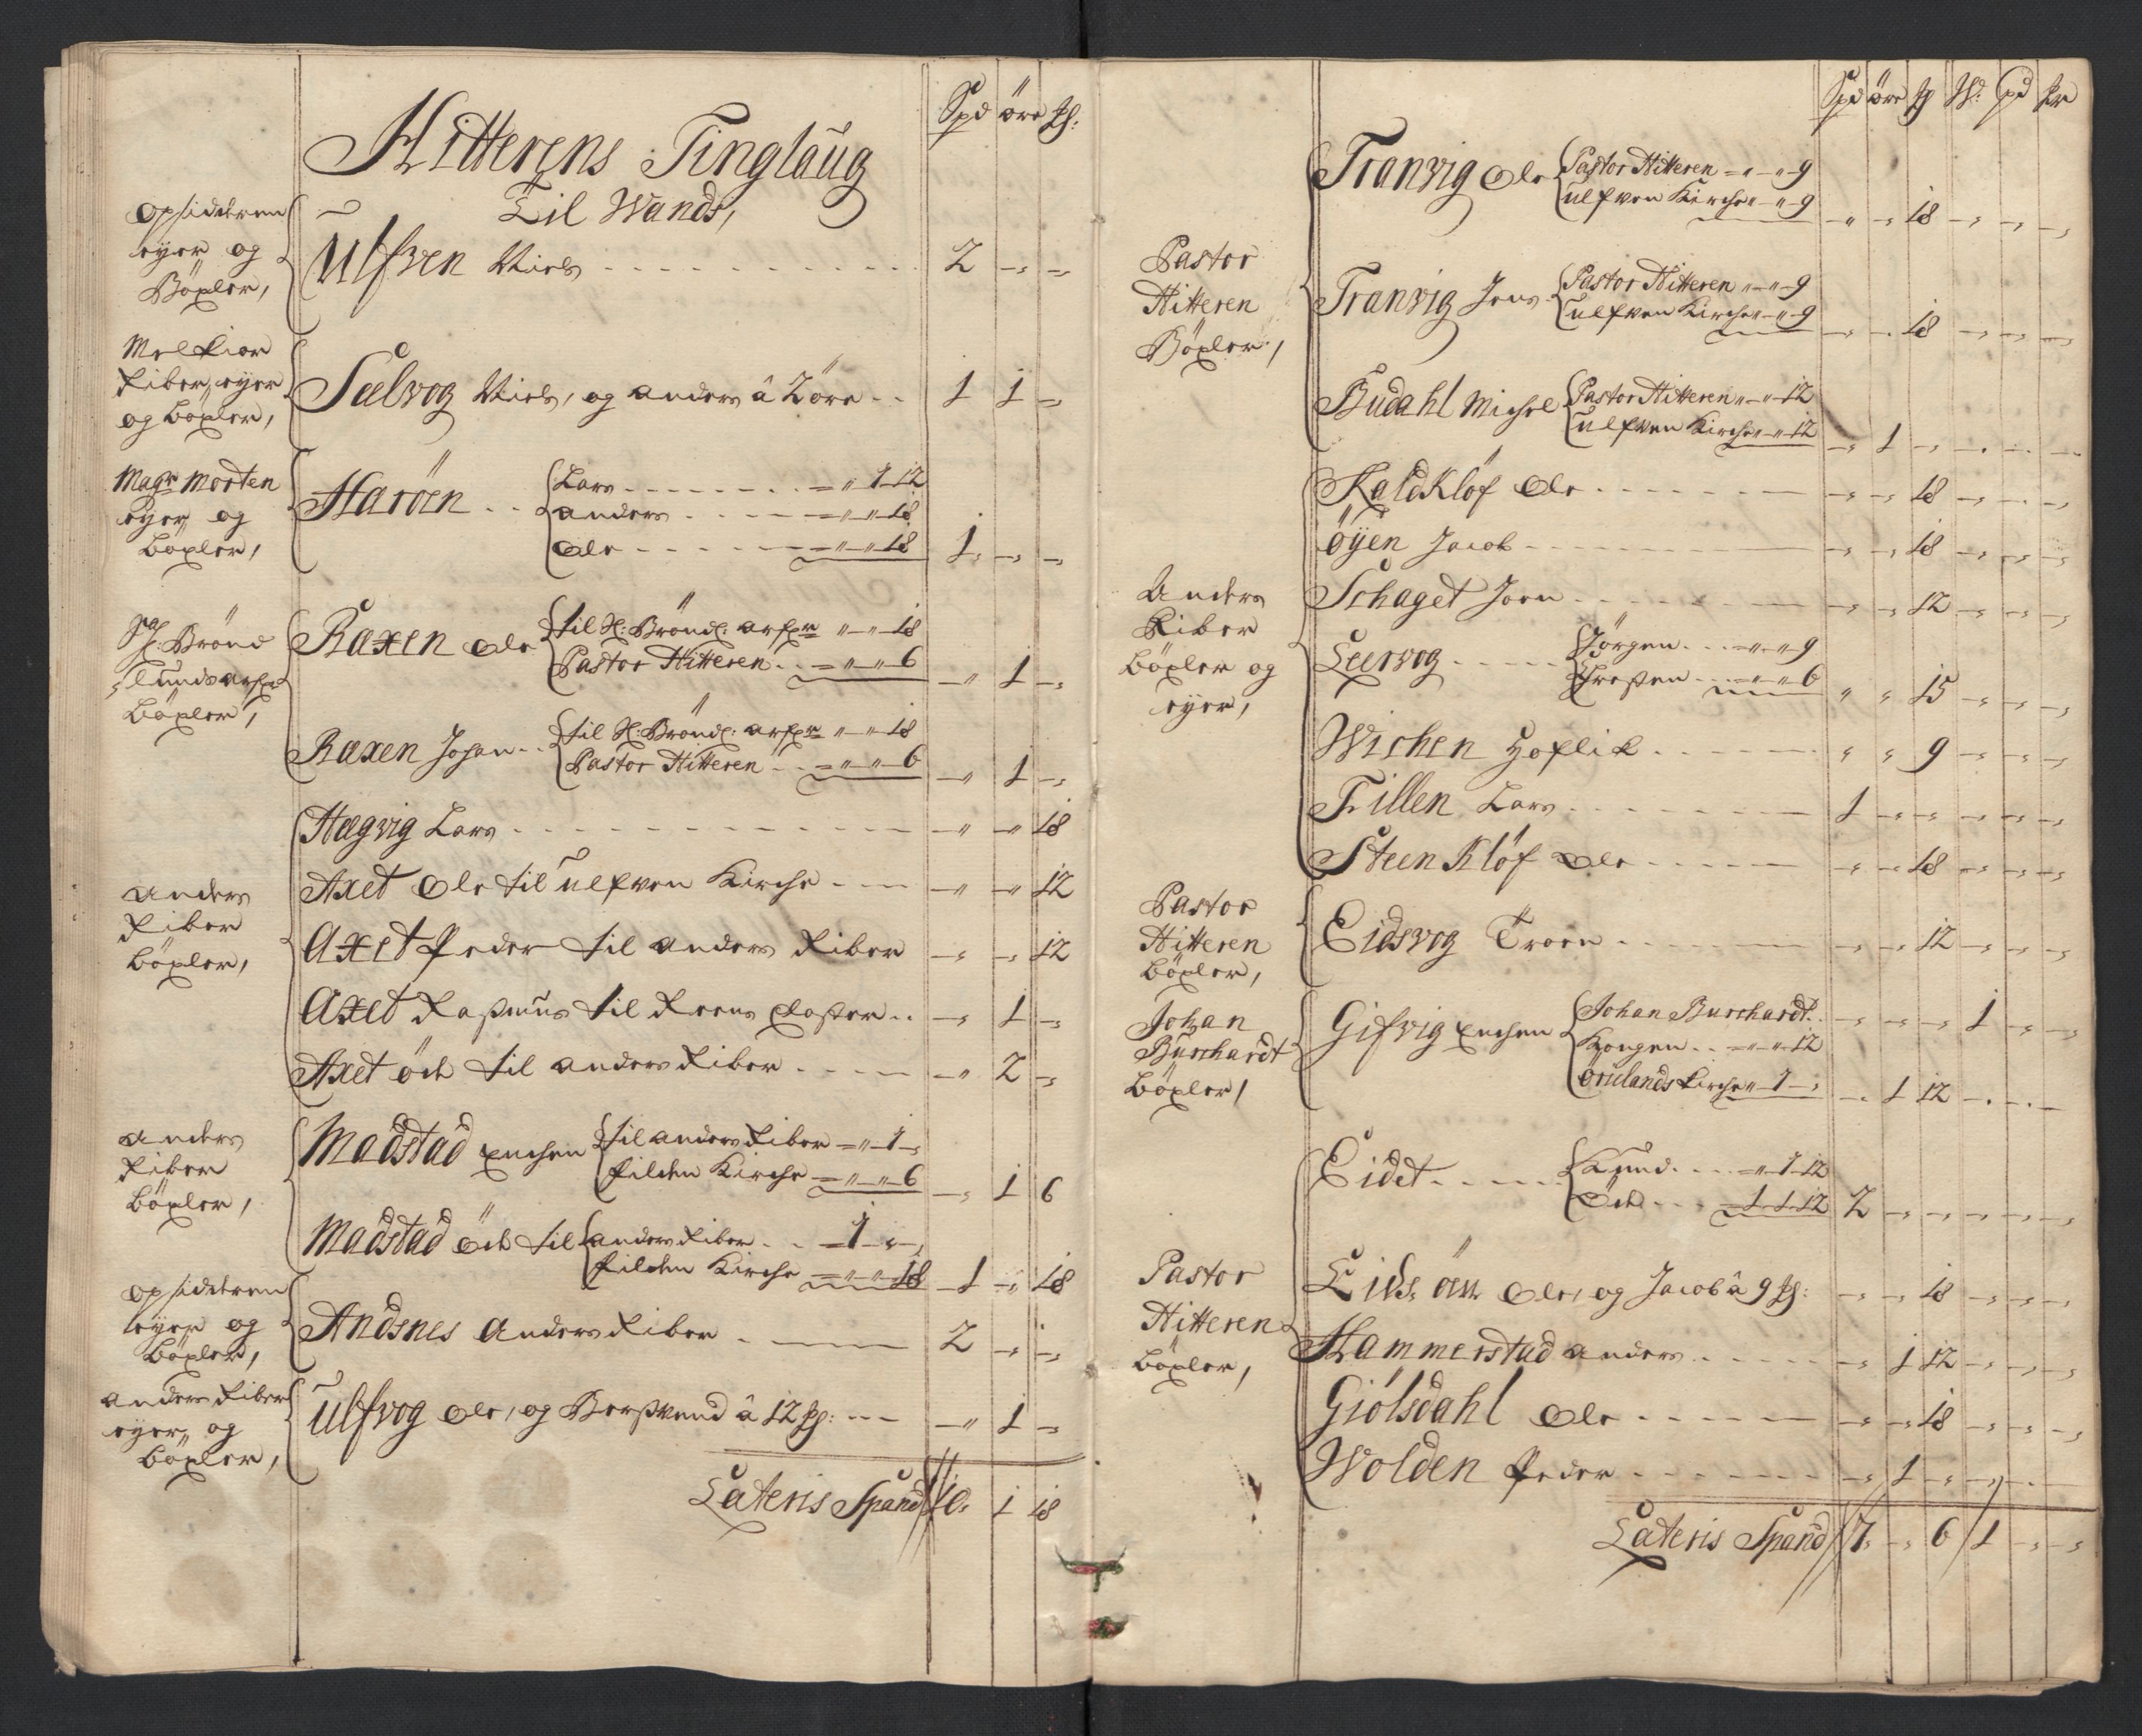 Spd öre [sh]:
Hitterens Tinglaug
Til Wands,
Opsidderen
eyer og
Böxler,
Ulfven Niels 2 -- --
Melkior
Riber, eyer
og böxler,
Sælvog Niels, og Anders â 2 öre 1 1 --
Magr Morten
eyer og
böxler,
Haröen Lars 1-12
Anders 18
Ole 18 1 -- --
Sl: Brönd
lunds arfr
böxler,
Raxen Ole til Sl: Brönd: arfr 18
Pastor Hitteren 6 -- 1 --
Raxen Johan til Sl: Brönd: arfr 18
Pastor Hitteren 6 -- 1 --
Hægvig Lars -- -- 18
Anders
Riber
böxler,
Axet Ole til Ulfven Kirche -- -- 12
Axet Peder til Anders Riber -- -- 12
Axet Rasmus til Reens Closter -- 1 --
Axet öde til Anders Riber -- 2 --
Anders
Riber
böxler,
Madstad Enchen til Anders Riber 1
Filden Kirche 6 -- 1 6
Madstad Öde til Anders Riber 1
Filden Kirche 18 1 -- 18
Opsidderen
eyer og
böxler,
Andsnes Anders Riber 2 -- --
Anders Riber
eyer, og
böxler,
Ulfvog Ole, og Berswend â 12 [sh]: -- 1 --
Lateris Spand 10 1 18
Spd öre [sh] W: pd
Tranvig Ole Pastor Hitteren 9
Ulfven Kirche 9 -- -- 18 -- -- --
Pastor
Hitteren
Böxler,
Tranvig Jens Pastor Hitteren 9
Ulfven Kirche 9 -- -- 18 -- -- --
Budahl Michel Pastor Hitteren 12
Ulfven Kirche 12 -- 1 -- -- -- --
Kaldklöf Ole -- -- 18 -- -- --
öÿen Jacob -- -- 18 -- -- --
Anders
Riber
böxler og
eyer,
Schaget Joen -- -- 12 -- -- --
Leervog Jörgen 9
Presten 6 15 -- -- --
Wichen 9 -- -- --
Fillen Lars 1 -- -- -- -- --
Steen Klöf Ole -- -- 18 -- -- --
Pastor
Hitteren
böxler,
Eidsvog Troen -- -- 12 -- -- --
Johan
Burchardt
böxler,
Gifvig Enchen Johan Burchardt -- -- -- 1 -- --
Kongen 12
Örelands Kirche 1 -- 1 12 -- -- --
Eidet Knud 1-12
Öde 1-1-12 2 -- -- -- -- --
Pastor
Hitteren
böxler,
Ole, og Jacob â 9 [sh]: -- -- 18 -- -- --
Hammerstad Anders -- 1 12 -- -- --
Giölsdahl Ole -- -- 18 -- -- --
Wolden Peder -- 1 -- -- --
Lateris Spand 7 -- 6 1 -- --